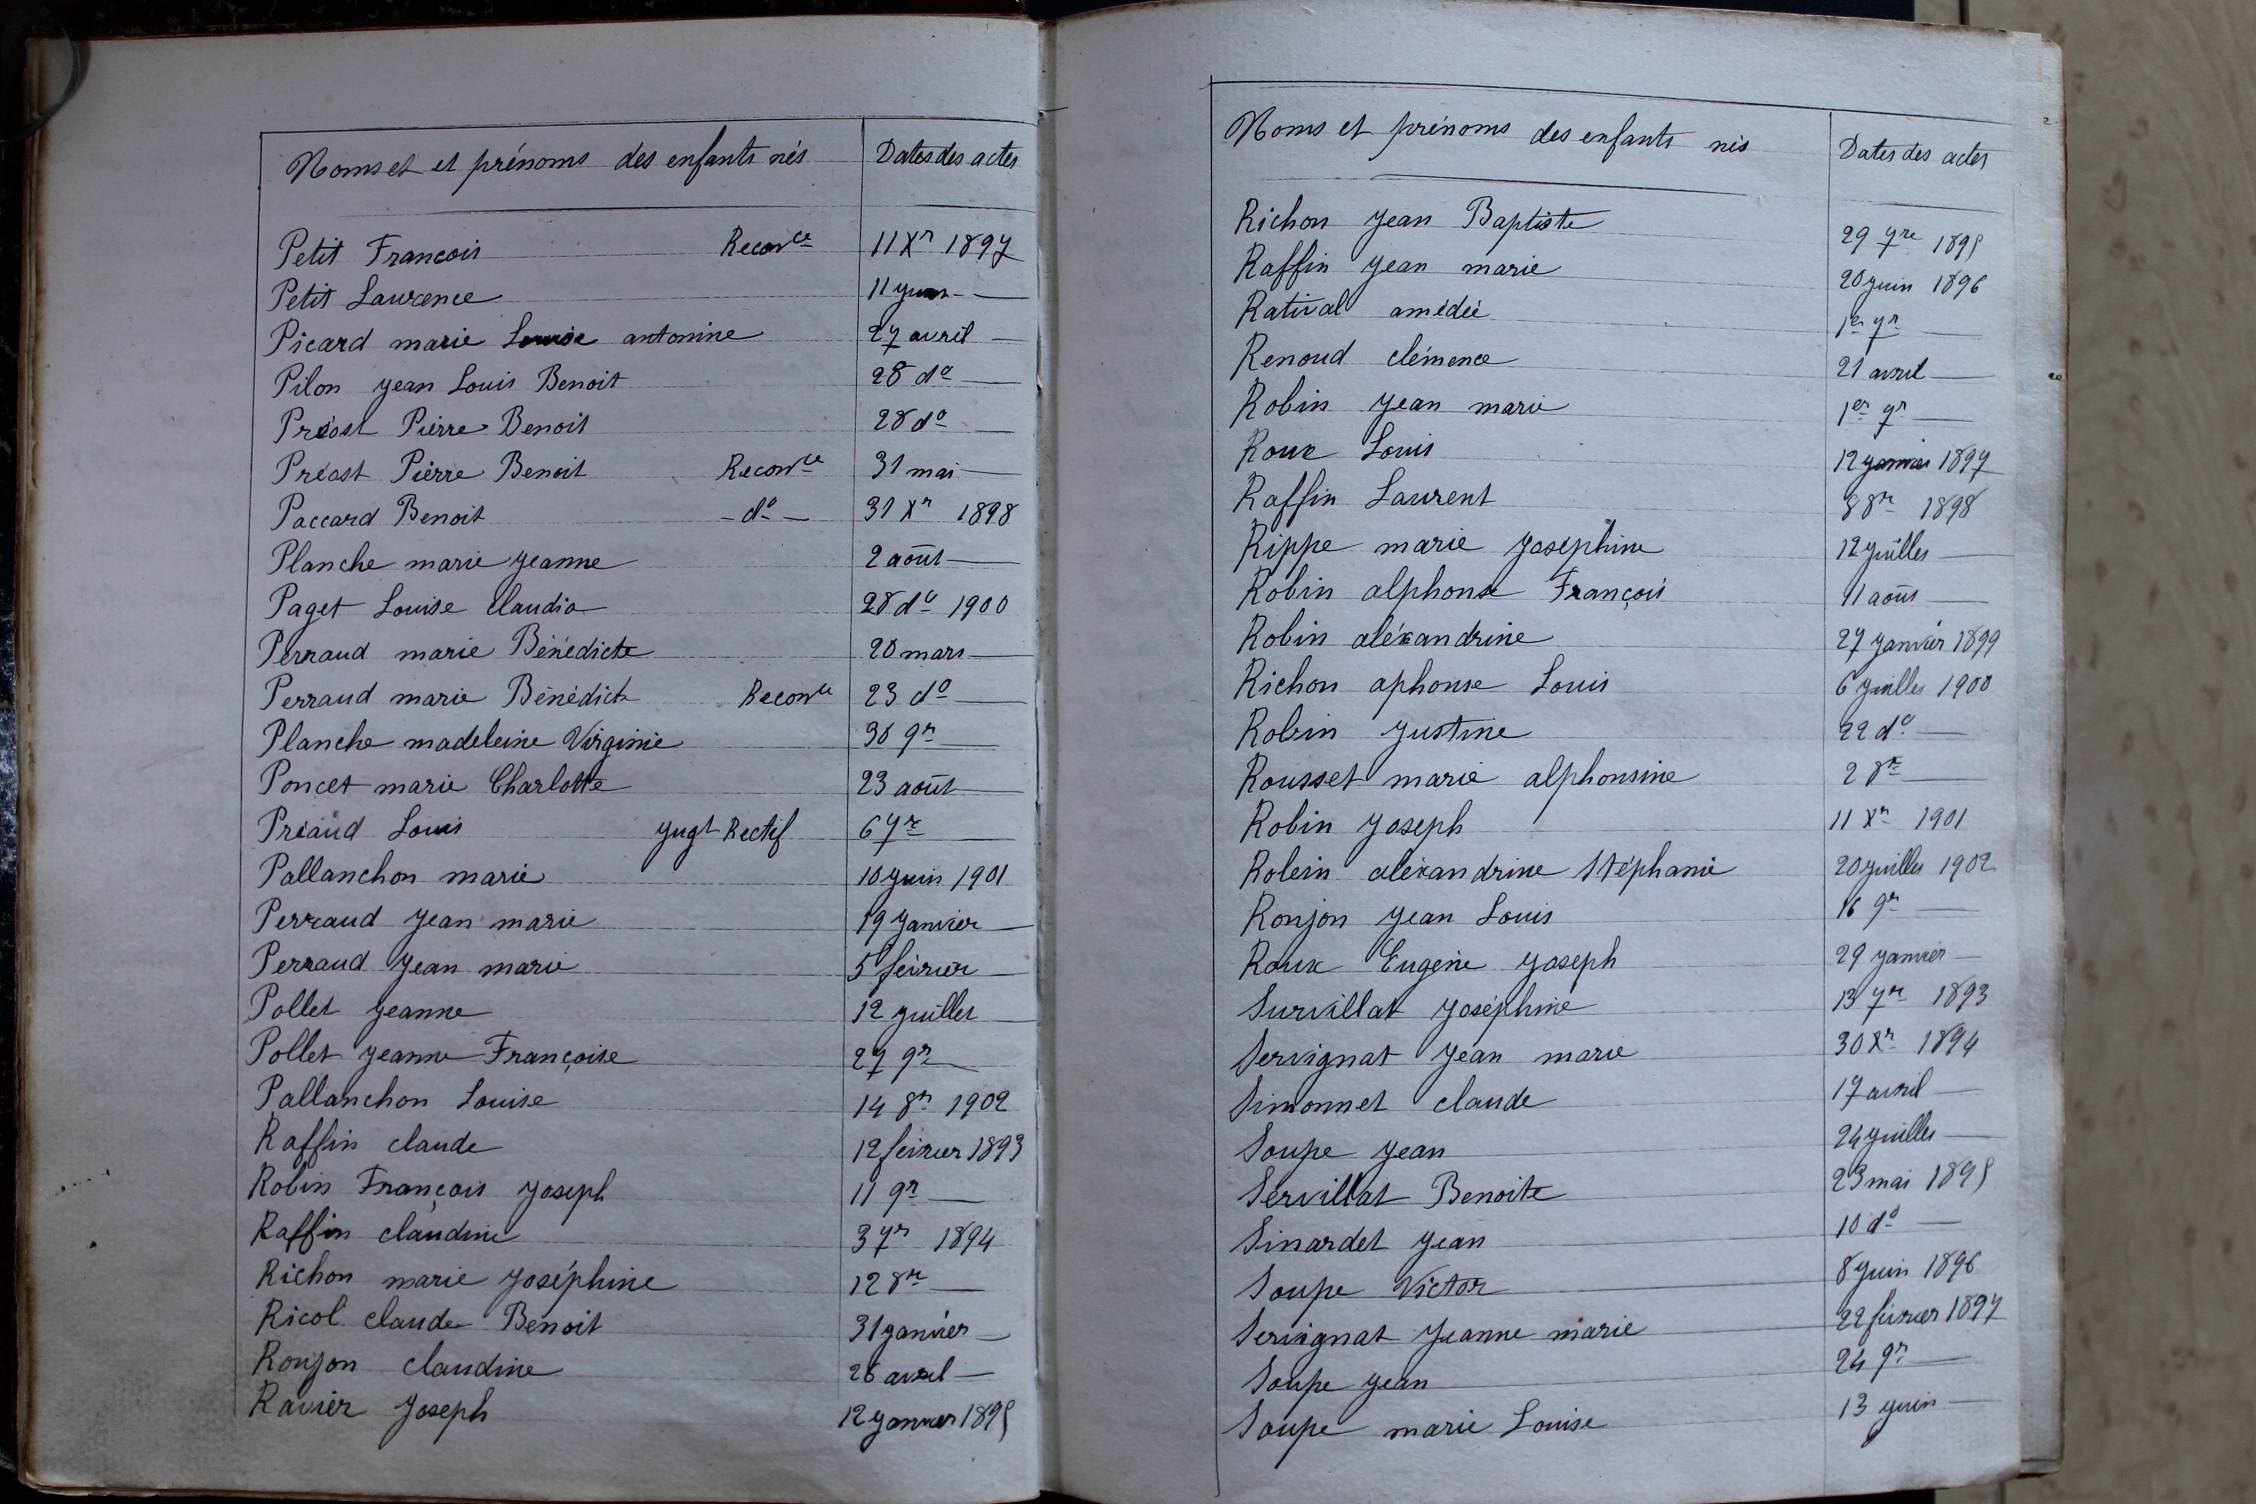 Noms et et prénoms des enfants nés Dates des actes
Petit Francois Reconce 11 Xr 1897
Petit Laurence 11 juin —
Picard marie Louise antonine 27 avril —
Pilon jean Louis Benoit 28 do —
Préost Pierre Benoit 28 do —
Préost Pierre Benoit Reconce 31 mai —
Paccard Benoit — do — 31 Xr 1898
Planche marie jeanne 2 août —
Paget Louise Claudia 28 do 1900
Perraud marie Bénédicte 20 mars —
Perraud marie Bénédicte Reconce 23 do —
Planche madeleine Virginie 30 9r —
Poncet marie Charlotte 23 août —
Préaud Louis jugt Rectif 6 7r —
Pallanchon marie 10 juin 1901
Perraud jean marie 19 janvier —
Perraud jean marie 5 février —
Pollet jeanne 12 juillet —
Pollet jeanne Françoise 27 9r —
Pallanchon Louise 14 8r 1902
Raffin claude 12 février 1893
Robin François joseph 11 9r —
Raffin claudine 3 7r 1894
Richon marie joséphine 12 8r —
Ricol claude Benoit 31 janvier —
Ronjon claudine 26 avril —
Ravier joseph 12 janvier 1895
Noms et prénoms des enfants nés Dates des actes
Richon jean Baptiste 29 7re 1895
Raffin jean marie 20 juin 1896
Ratival amédée 1er 7r —
Renoud clémence 21 avril —
Robin jean marie 1er 9r —
Roux Louis 12 janvier 1897
Raffin Laurent 8 8r 1898
Rippe marie joséphine 12 juillet —
Robin alphonse François 11 août —
Robin aléxandrine 27 janvier 1899
Richon aphonse Louis 6 juillet 1900
Robin justine 22 do —
Rousset marie alphonsine 2 8r —
Robin joseph 11 Xr 1901
Robin aléxandrine Stéphanie 20 juillet 1902
Ronjon jean Louis 16 9r —
Roux Eugène joseph 29 janvier —
Survillat joséphine 13 7r 1893
Servignat jean marie 30 Xr 1894
Simonnet claude 17 avril —
Soupe jean 24 juillet —
Servillat Benoite 23 mai 1895
Sinardet jean 10 do —
Soupe Victor 8 juin 1896
Servignat jeanne marie 22 février 1897
Soupe jean 24 9r —
Soupe marie Louise 13 juin —